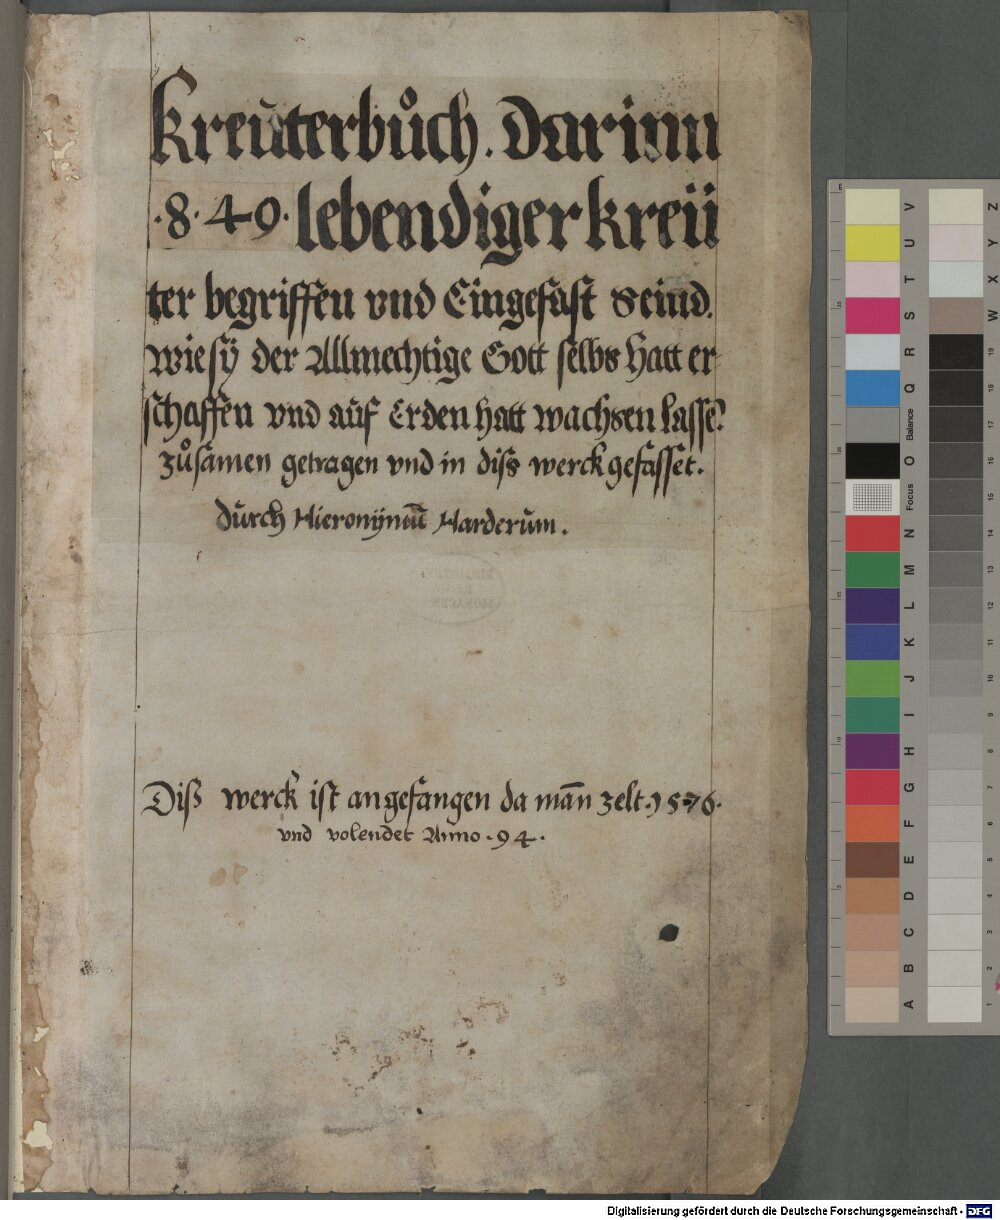 Kreuterbůch. Darinn
·8·49· lebendiger kreü
ter begriffen vnd Eingefast seind.
wie sÿ der Allmechtige Gott selbs hatt er-
schaffen vnd auf Erden hatt wachsen lassē.
zůsamen getragen vnd in diss werck gefasset.
durch Hieronÿmū Harderum.
Diß werck ist angefangen da mān zelt ·1576·
vnd volendet Anno ·94·
Digitalisierung gefördert durch die Deutsche Forschungsgemeinschaft - DFG
A B C D E F G H I J K L M N Focus O Balance Q R S T U V
1 2 3 4 5 6 7 8 9 10 11 12 13 14 15 16 17 18 19 W X Y Z